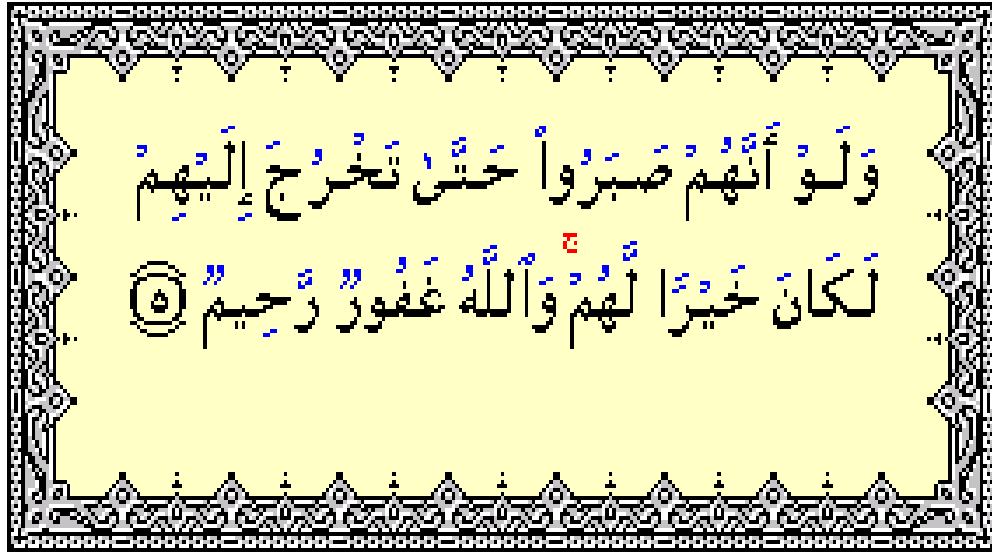 وَلَوْ أَنَّهُمْ صَبَرُوا۟ حَتَّىٰ تَخْرُجَ إِلَيْهِمْ
لَكَانَ خَيْرًا لَّهُمْ ۚ وَٱللَّهُ غَفُورٌ رَّحِيمٌ ٥